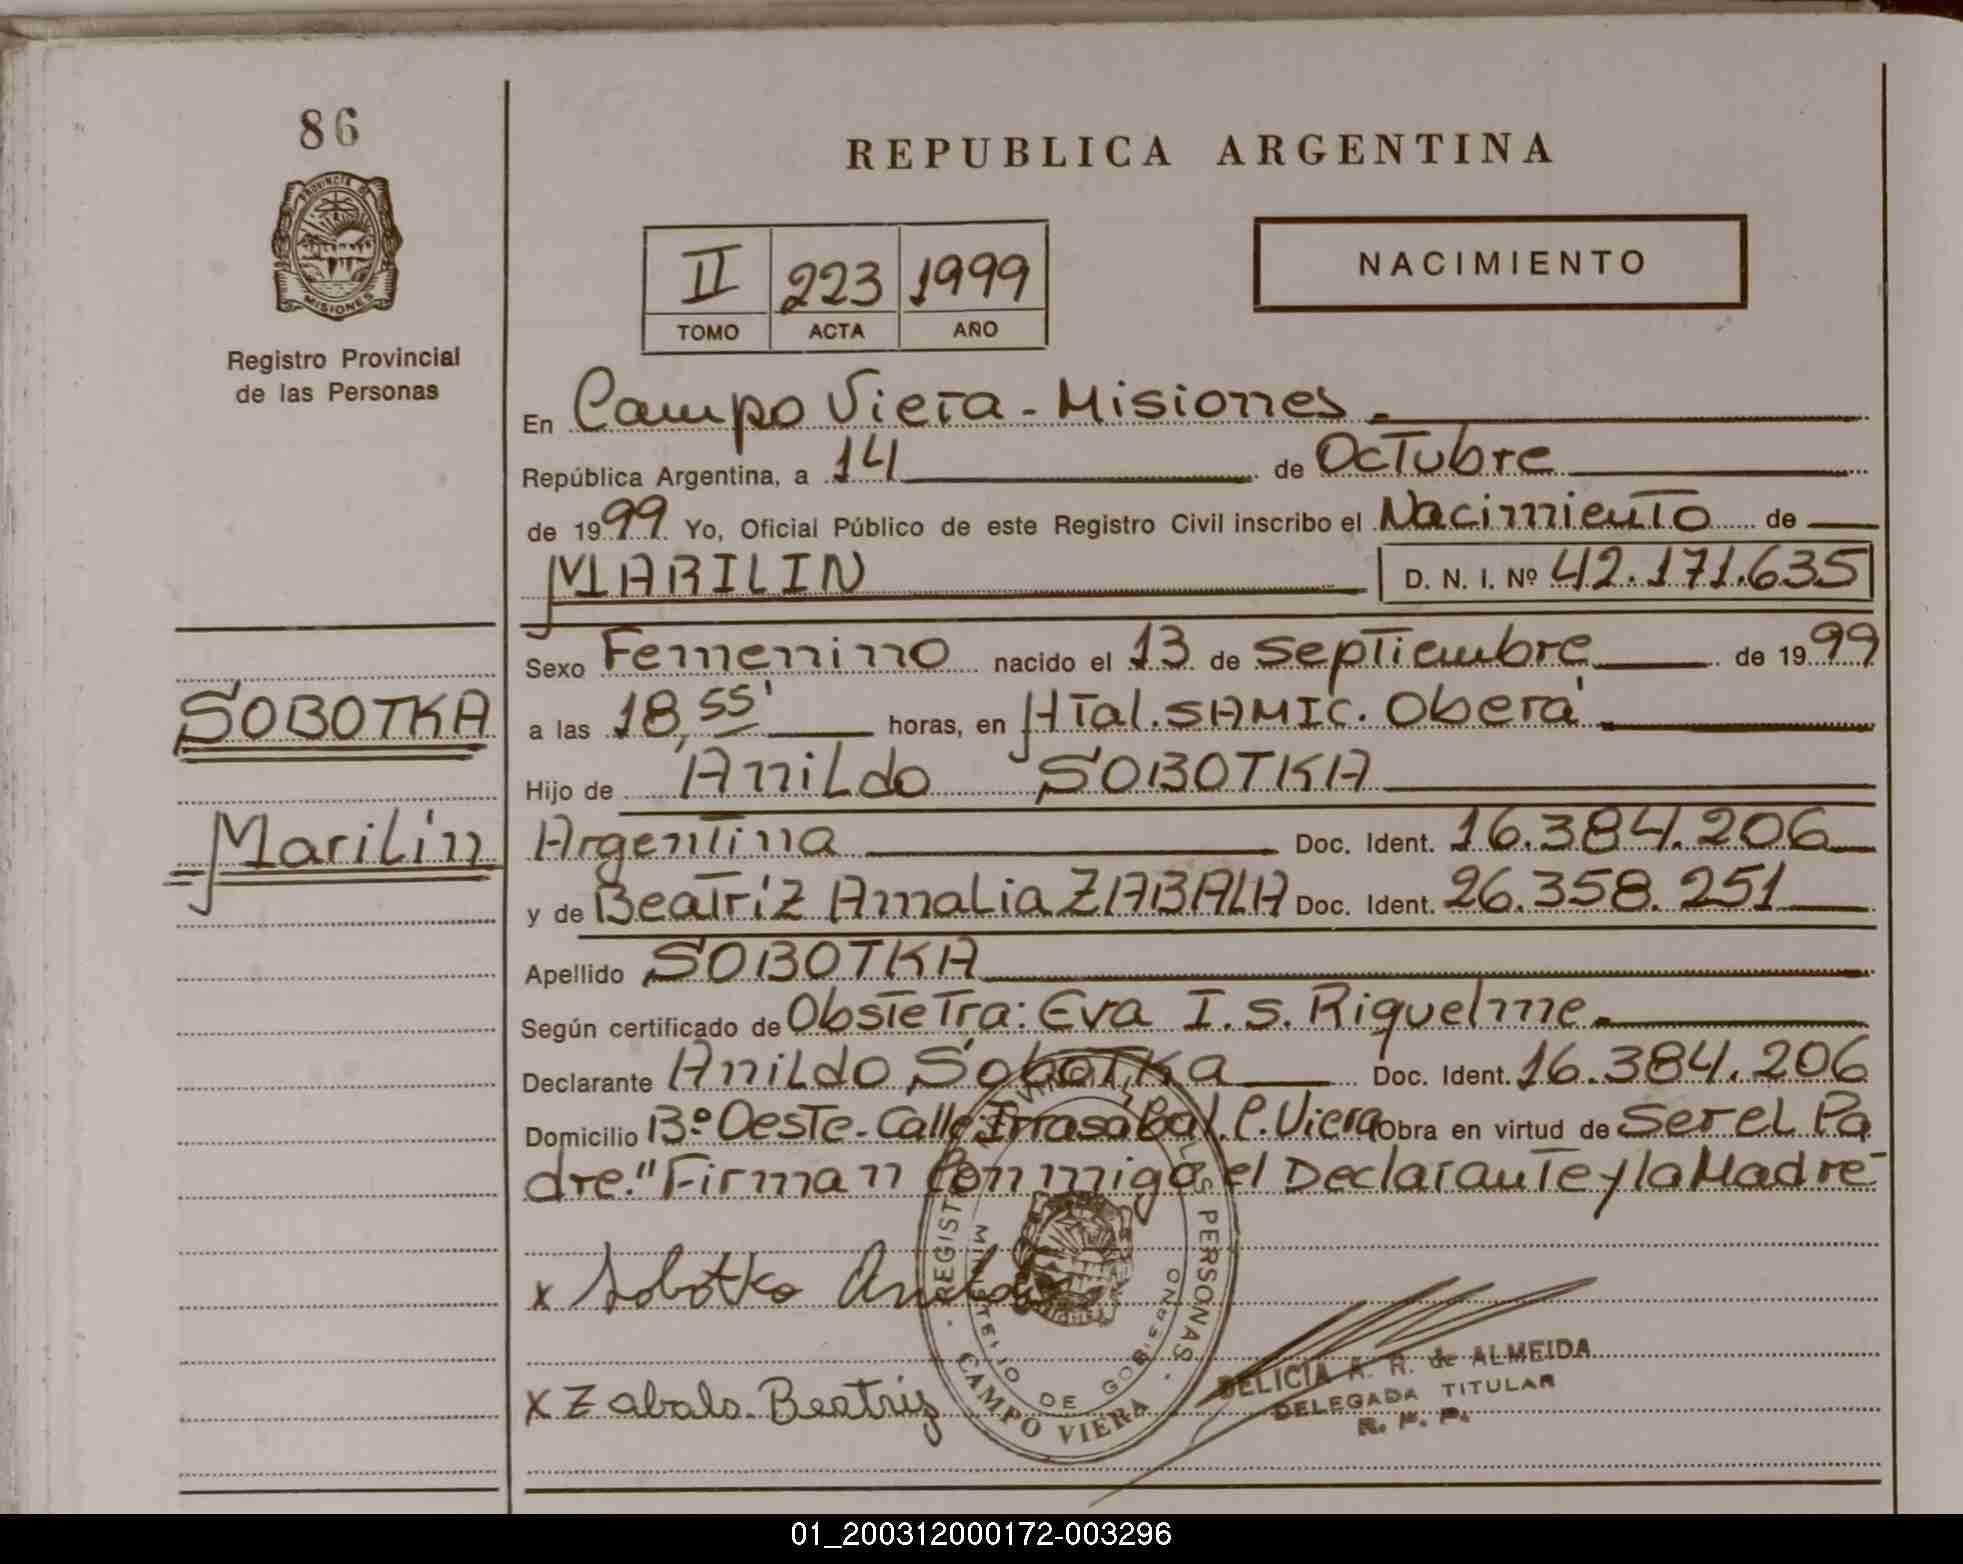 86
PROVINCIA DE
MISIONES
Registro Provincial
de las Personas
SOBOTKA
Marilin
REPUBLICA ARGENTINA
II 223 1999
TOMO ACTA AÑO
NACIMIENTO
En Campo Viera - Misiones.
República Argentina, a 14 de Octubre
de 1999 Yo, Oficial Público de este Registro Civil inscribo el Nacimiento de
MARILIN D. N. I. Nº 42.171.635
Sexo Femenino nacido el 13 de septiembre de 1999
a las 18,55' horas, en HTal. SAMIC. Oberá
Hijo de Anildo SOBOTKA
Argentina Doc. Ident. 16.384.206
y de Beatriz Amalia ZABALA Doc. Ident. 26.358.251
Apellido SOBOTKA
Según certificado de Obstetra: Eva I. S. Riquelme.
Declarante Anildo Sobotka Doc. Ident. 16.384.206
Domicilio Bº Oeste - Calle Irrasabal. C. Viera Obra en virtud de Ser el Pa
dre." Firman Conmigo el Declarante y la Madre-
x Sobotka Anildo
x Zabala Beatriz
REGISTRO PERSONAS
MINISTERIO DE GOBIERNO
CAMPO VIERA
DELICIA A. R. de ALMEIDA
DELEGADA TITULAR
R. P. P.
01_200312000172-003296